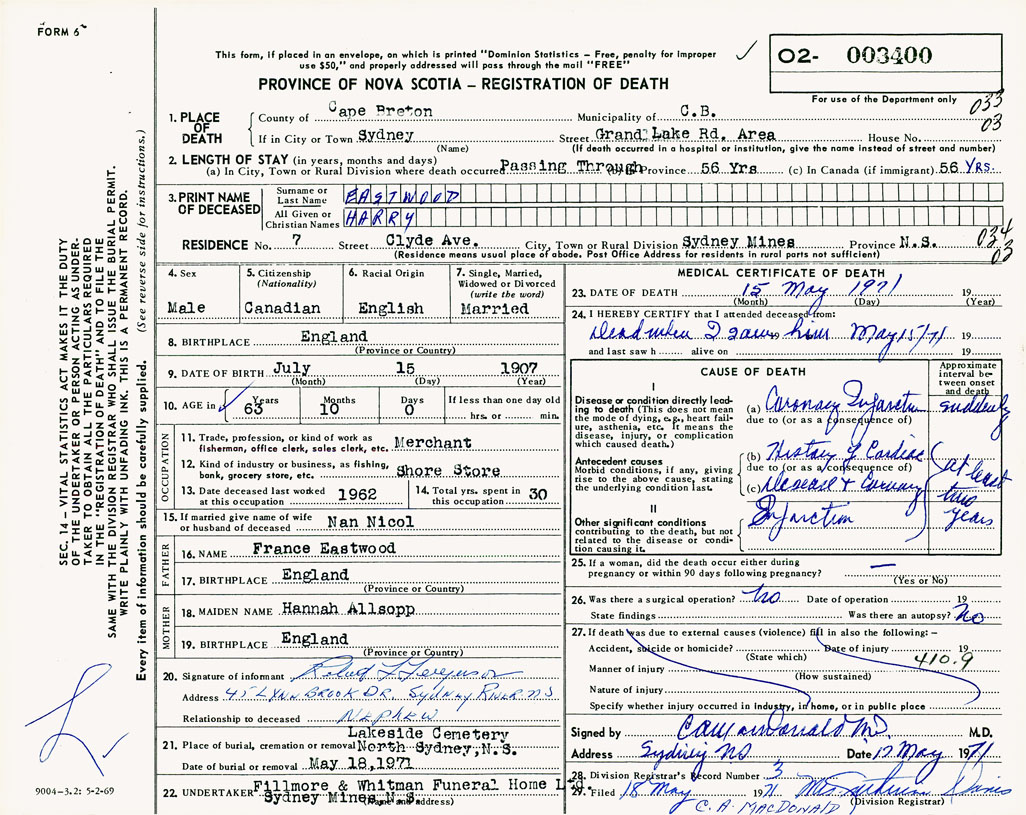 FORM 6
This form, if placed in an envelope, on which is printed "Dominion Statistics – Free, penalty for improper
use $50," and properly addressed will pass through the mail "FREE"
O2- 003400
PROVINCE OF NOVA SCOTIA – REGISTRATION OF DEATH
For use of the Department only
033
03
1. PLACE OF DEATH
County of Cape Breton Municipality of C.B.
If in City or Town Sydney Street Grand Lake Rd. Area House No.
(Name) (If death occurred in a hospital or institution, give the name instead of street and number)
2. LENGTH OF STAY (in years, months and days)
(a) In City, Town or Rural Division where death occurred Passing Through (b) Province 56 Yrs (c) In Canada (if immigrant) 56 Yrs.
3. PRINT NAME OF DECEASED
Surname or Last Name EASTWOOD
All Given or Christian Names HARRY
034
03
RESIDENCE No. 7 Street Clyde Ave. City, Town or Rural Division Sydney Mines Province N.S.
(Residence means usual place of abode. Post Office Address for residents in rural parts not sufficient)
4. Sex
Male
5. Citizenship (Nationality)
Canadian
6. Racial Origin
English
7. Single, Married, Widowed or Divorced (write the word)
Married
8. BIRTHPLACE England
(Province or Country)
9. DATE OF BIRTH July 15 1907
(Month) (Day) (Year)
10. AGE in Years 63 Months 10 Days 0 If less than one day old
hrs. or min.
OCCUPATION
11. Trade, profession, or kind of work as fisherman, office clerk, sales clerk, etc. Merchant
12. Kind of industry or business, as fishing, bank, grocery store, etc. Shore Store
13. Date deceased last worked at this occupation 1962
14. Total yrs. spent in this occupation 30
15. If married give name of wife or husband of deceased Nan Nicol
FATHER
16. NAME France Eastwood
17. BIRTHPLACE England
(Province or Country)
MOTHER
18. MAIDEN NAME Hannah Allsopp
19. BIRTHPLACE England
(Province or Country)
20. Signature of informant
Address 45 LYNN BROOK DR. SYDNEY RIVER NS
Relationship to deceased NEPHEW
21. Place of burial, cremation or removal Lakeside Cemetery
North Sydney, N.S.
Date of burial or removal May 18, 1971
22. UNDERTAKER Fillmore & Whitman Funeral Home Ltd.
Sydney Mines N.S.
(Name and address)
MEDICAL CERTIFICATE OF DEATH
23. DATE OF DEATH 15 May 1971 19
(Month) (Day) (Year)
24. I HEREBY CERTIFY that I attended deceased from:
Dead when I saw 19 him May 15/71 19
and last saw h alive on 19
CAUSE OF DEATH
Approximate interval between onset and death
I
Disease or condition directly leading to death (This does not mean the mode of dying, e.g., heart failure, asthenia, etc. It means the disease, injury, or complication which caused death.)
(a) Coronary Infarction suddenly
due to (or as a consequence of)
Antecedent causes
Morbid conditions, if any, giving rise to the above cause, stating the underlying condition last.
(b) History of Cardiac
due to (or as a consequence of)
(c) Disease & Coronary
Infarction
(at least two years
II
Other significant conditions contributing to the death, but not related to the disease or condition causing it.
25. If a woman, did the death occur either during pregnancy or within 90 days following pregnancy? —
(Yes or No)
26. Was there a surgical operation? No Date of operation 19
State findings Was there an autopsy? No
27. If death was due to external causes (violence) fill in also the following:–
Accident, suicide or homicide? Date of injury 19
(State which) 410.9
Manner of injury
(How sustained)
Nature of injury
Specify whether injury occurred in industry, in home, or in public place
Signed by M.D.
Address Sydney NS Date 17 May 1971
28. Division Registrar's Record Number 3
29. Filed 18 May 1971
(Division Registrar)
C. A. MACDONALD
SEC. 14 – VITAL STATISTICS ACT MAKES IT THE DUTY
OF THE UNDERTAKER OR PERSON ACTING AS UNDER-
TAKER TO OBTAIN ALL THE PARTICULARS REQUIRED
IN THE "REGISTRATION OF DEATH" AND TO FILE THE
SAME WITH THE DIVISION REGISTRAR WHO SHALL ISSUE THE BURIAL PERMIT.
WRITE PLAINLY WITH UNFADING INK. THIS IS A PERMANENT RECORD.
Every item of information should be carefully supplied. (See reverse side for instructions.)
9004-3.2: 5-2-69